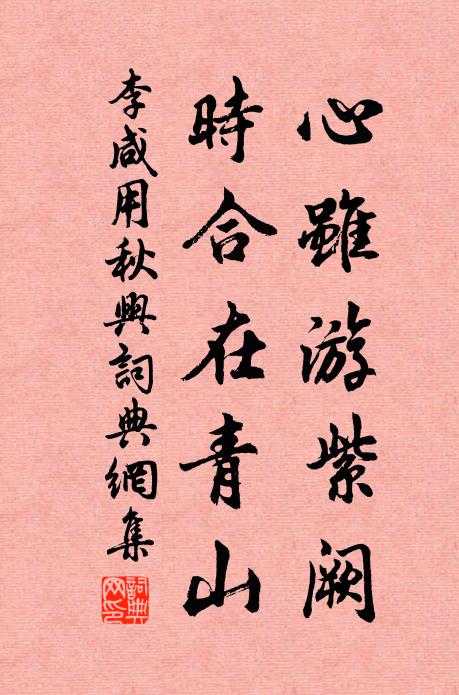 心雖游紫闕
時合在青山
李咸用秋興詞典網集
詞典網印